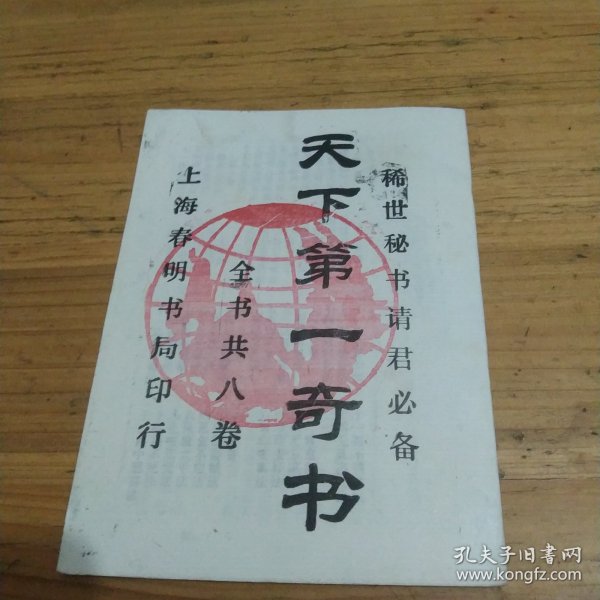 稀世秘书请君必备
天下第一奇书
全书共八卷
上海春明书局印行
孔夫子旧書网
www.kongfz.com